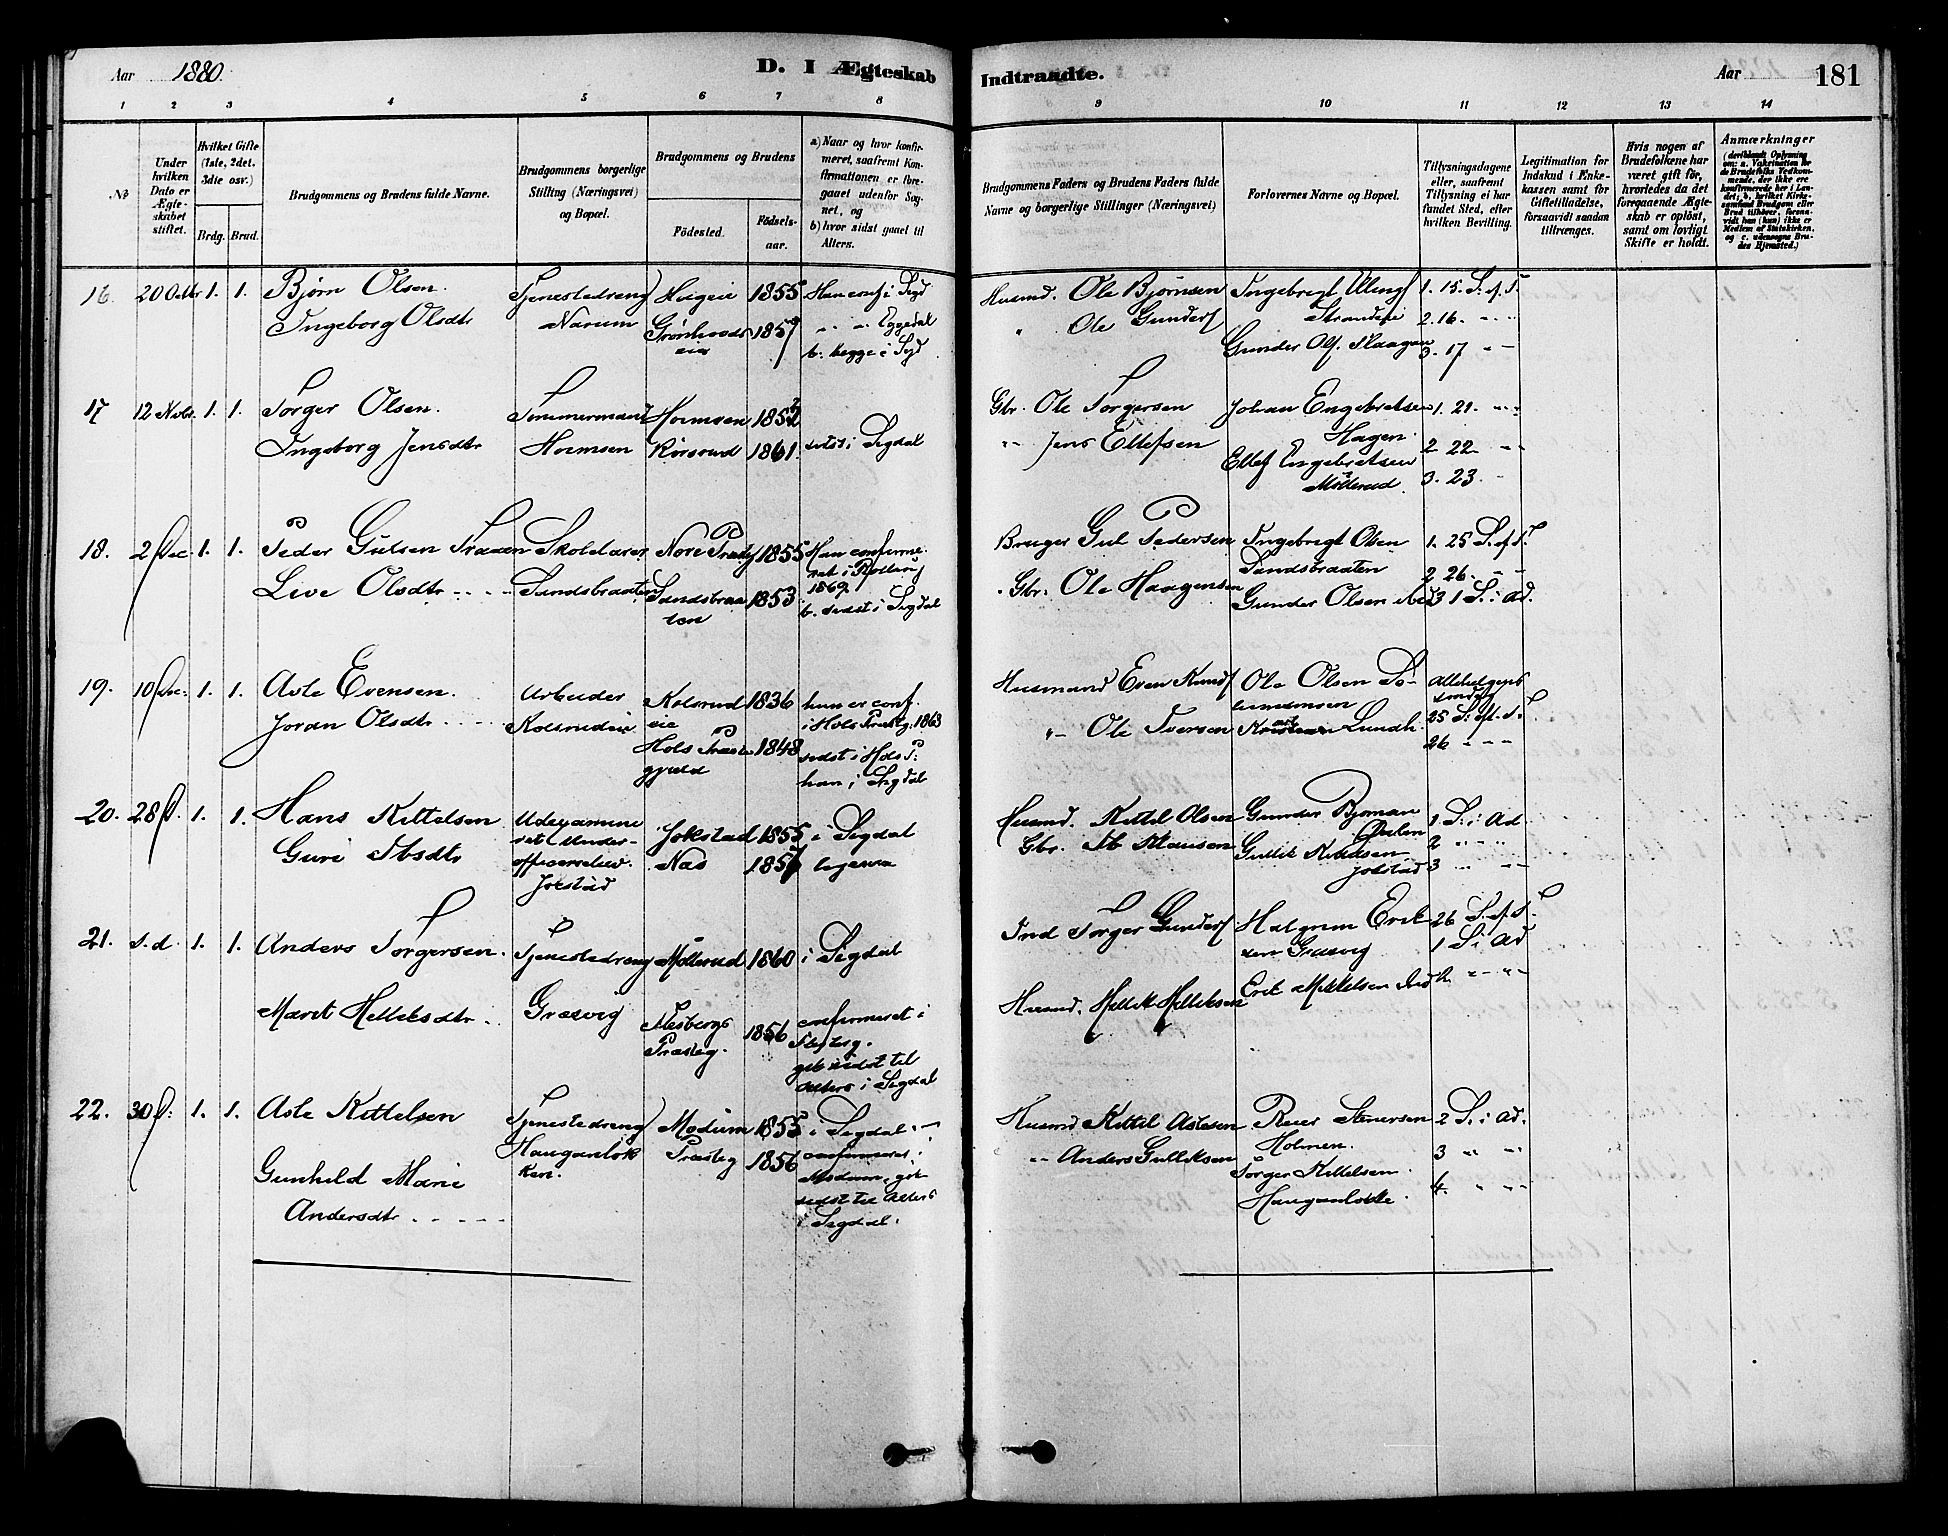 Aar 1880.
D. I Ægteskab
Indtraadte.
Aar
181
1 2 3 4 5 6 7 8
9 10 11 12 13 14
No
Under hvilken Dato er Ægteskabet stiftet.
Hvilket Gifte (1ste, 2det, 3die osv.)
Brdg. Brud.
Brudgommens og Brudens fulde Navne.
Brudgommens borgerlige Stilling (Næringsvei) og Bopæl.
Brudgommens og Brudens
Fødested.
Fødselsaar.
a) Naar og hvor konfirmeret, saafremt Konfirmationen er foregaaet udenfor Sognet, og
b) hvor sidst gaaet til Alters.
Brudgommens Faders og Brudens Faders fulde Navne og borgerlige Stillinger (Næringsvei)
Forlovernes Navne og Bopæl.
Tillysningsdagene eller, saafremt Tillysning ei har fundet Sted, efter hvilken Bevilling.
Legitimation for Indskud i Enkekassen samt for Giftetilladelse, forsaavidt saadan tiltrænges.
Hvis nogen af Brudefolkene har været gift før, hvorledes da det foregaaende Ægteskab er opløst, samt om lovligt Skifte er holdt.
Anmærkninger
16. 20 Octbr 1. 1. Bjørn Olsen.
Ingeborg Olsdtr
Tjenestedreng
Narum
1855
1857
Han conf. i Sigd
" " Eggedal
b: begge i Sigd
Husmd. Ole Bjørnsen
" Ole Gunders
Ingebrigt
Gunder Ols.
1. 15. S. e. T.
2. 16. " "
3. 17 " "
17 12 Novbr. 1. 1. Torger Olsen.
Ingeborg Jensdtr
Tømmermand
Hormsen
Hormsen 1852
Kørsrud 1861.
sidst i Sigdal
Gbr. Ole Torgersen
" Jens Ellefsen
Johan Engebretsen
Hagen.
Ellef Engebretsen
Møllerud.
1. 21. " "
2 22 " "
3. 23. "
18. 2 Dec. 1. 1. Peder Gulsen Traaen
Live Olsdtr
Skolelærer
Sandsbraaten
Nore Præstg 1855
Sandsbraaten 1853.
Han confirmeret i Rollag 1869.
b. sidst i Sigdal
Bruger Gul Pedersen
Gbr. Ole Haagensen
Ingebrigt Olsen
Sandsbraaten
Gunder Olsen ibid
1. 25 S. e. T.
2 26. " "
3 1 S. i Ad.
19. 10 Dec. 1. 1. Asle Evensen.
Joran Olsdtr
Arbeider
Kolsrudeie
Kolsrud eie 1836
Hols Præstegjæld 1848
hun er conf. i Hols Præstg. 1863
sidst i Hols P:
han i Sigdal
Husmand Even Knuds
" Ole Iversen
Ole Olsen
Lundh.
Allehelgens søndag
25 S. e. T.
26 " " "
20. 28 D. 1. 1. Hans Kittelsen
Guri Ibsdtr
Udexamineret Underofficerselev.
Jokstad
Jokstad 1855
Næs 1857
i Sigdal
ligesaa
Husmd. Kittil Olsen
Gbr. Ib
Gunder Bjørnan
Gullik Kittelsen
Jokstad
1 S. i Ad
2 " " "
3 " " "
21. s. d. 1. 1. Anders Torgersen.
Marit Helleksdtr.
Tjenestedreng
Græsvig
Møllerud 1860
Flesbergs Præsteg. 1856
i Sigdal
confirmeret i Flesberg.
gik sidst til Alters i Sigdal
Ind Torger Gunders
Husmd. Hellik Helliksen
Halgrim Eriksen Græsvig
Erik Mikkelsen ibid
26 S. e. T.
1 S. i Ad
2. " " "
22. 30 D: 1. 1. Asle Kittelsen
Gunhild Marie
Andersdtr
Tjenestedreng
Hauganløkken.
Modum Præsteg
1855
1856
i Sigdal.
confirmeret i Modum, gik sidst til Alters i Sigdal.
Husmd Kittil Aslesen
" Anders Gulliksen
Reier Stenersen
Holmen.
Torger Kittelsen
Hauganløkke.
2 S. i Ad.
3 " " "
4. " " "